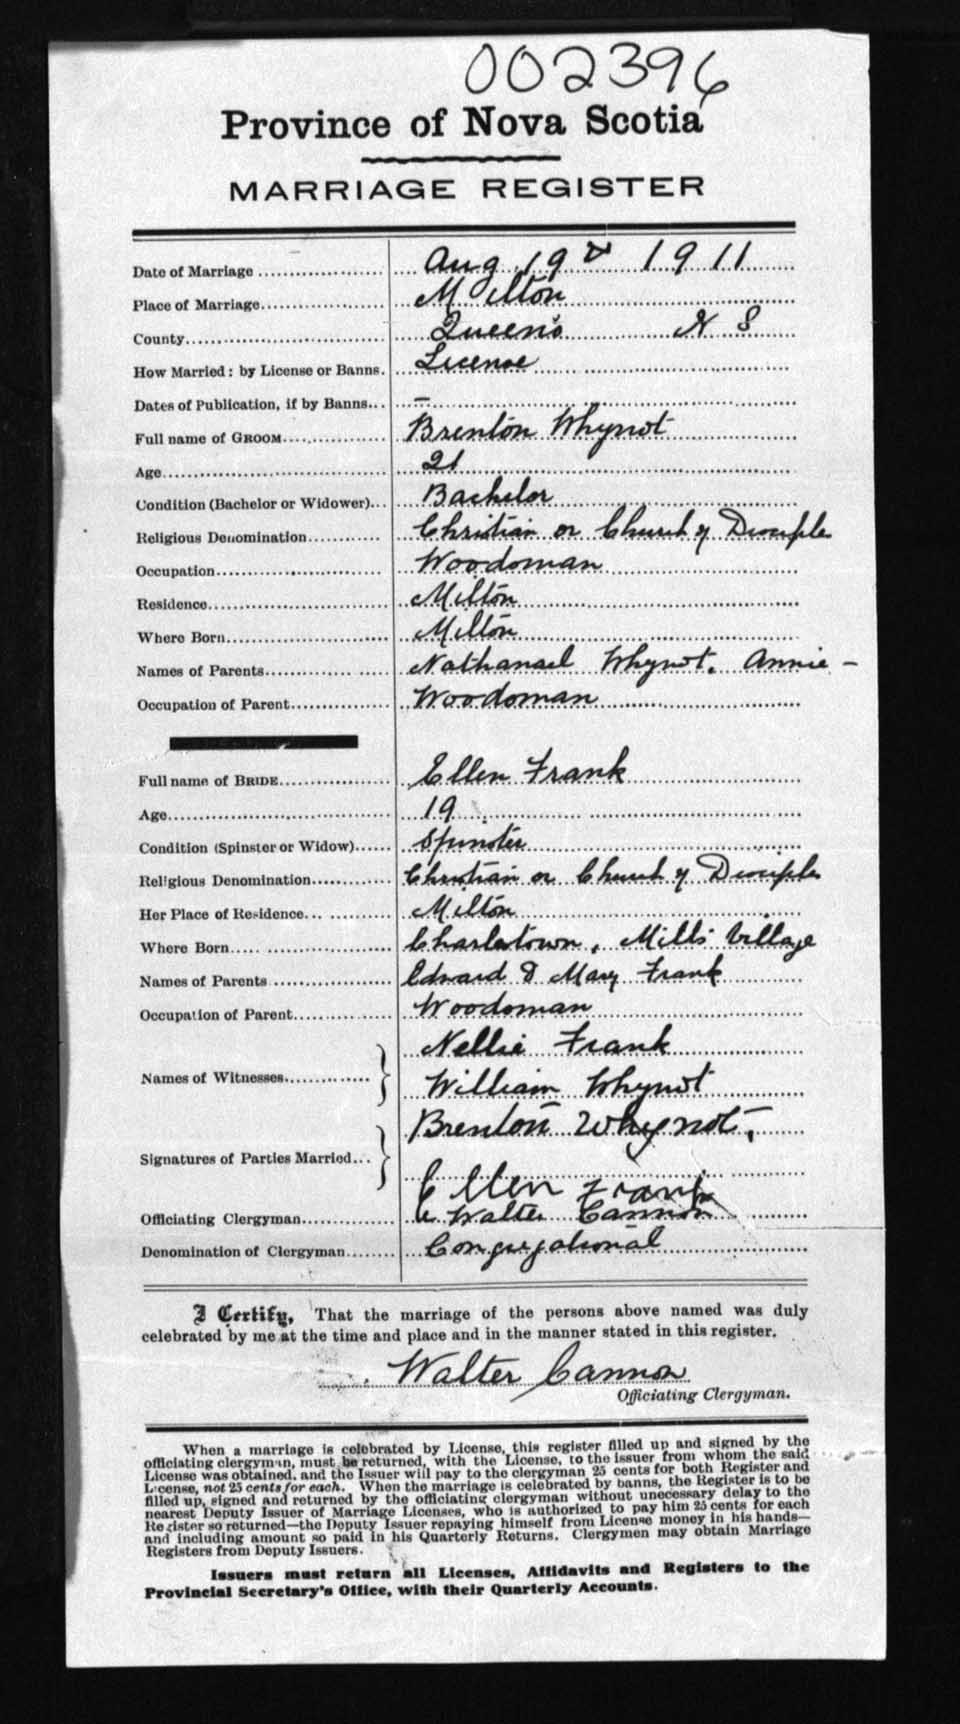 002396
Province of Nova Scotia
MARRIAGE REGISTER
Date of Marriage Aug 19th 1911
Place of Marriage Milton
County Queen's N S
How Married: by License or Banns. License
Dates of Publication, if by Banns —
Full name of GROOM Brenton Whynot
Age 21
Condition (Bachelor or Widower) Bachelor
Religious Denomination Christian or Church of Disciples
Occupation Woodsman
Residence Milton
Where Born Milton
Names of Parents Nathanael Whynot. Annie —
Occupation of Parent Woodsman
Full name of BRIDE Ellen Frank
Age 19
Condition (Spinster or Widow) Spinster
Religious Denomination Christian or Church of Disciples
Her Place of Residence Milton
Where Born Charlestown, Mills Village
Names of Parents Edward & Mary Frank
Occupation of Parent Woodsman
Nellie Frank
Names of Witnesses
William Whynot
Brenton Whynot,
Signatures of Parties Married
Ellen Frank
Officiating Clergyman Walter Cannon
Denomination of Clergyman Congregational
I Certify, That the marriage of the persons above named was duly
celebrated by me at the time and place and in the manner stated in this register.
Walter Cannon
Officiating Clergyman.
When a marriage is celebrated by License, this register filled up and signed by the
officiating clergyman, must be returned, with the License, to the issuer from whom the said
License was obtained, and the Issuer will pay to the clergyman 25 cents for both Register and
License, not 25 cents for each. When the marriage is celebrated by banns, the Register is to be
filled up, signed and returned by the officiating clergyman without unnecessary delay to the
nearest Deputy Issuer of Marriage Licenses, who is authorized to pay him 25 cents for each
Register so returned—the Deputy Issuer repaying himself from License money in his hands—
and including amount so paid in his Quarterly Returns. Clergymen may obtain Marriage
Registers from Deputy Issuers.
Issuers must return all Licenses, Affidavits and Registers to the
Provincial Secretary's Office, with their Quarterly Accounts.